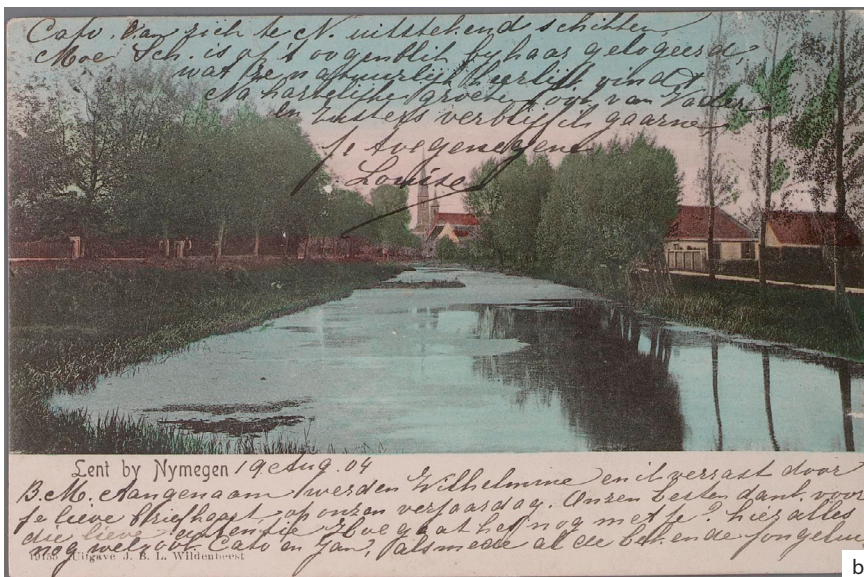 Cato. Dan zich te N. uitstekend schikken.
Moe Sch. is op 't oogenblik bij haar gelogeerd,
wat ze natuurlijk heerlijk vindt
Na hartelijke groeten ook van Vader
en zusters verblijf ik gaarne
je toegenegene
Louise
Lent by Nymegen 19 Aug. 04
B.M. Aangenaam werden Wilhelmine en ik verrast door
je lieve briefkaart op onzen verjaardag. Onzen besten dank voor
die lieve attentie Hoe gaat het nog met je? hier alles
nog welvoor. Cato en Jan, alsmede al de bekende jongelui
Uitgave J. B. L. Wildenbeest
b